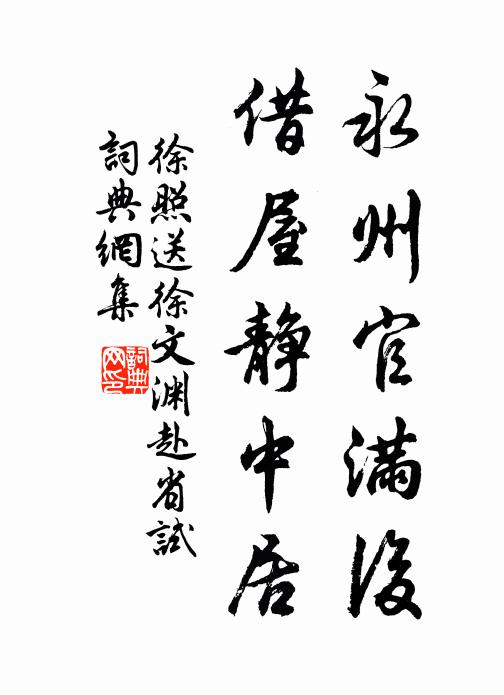 永州官满後
借屋静中居
徐照送徐文渊赴省試
詞典網集
詞典网印